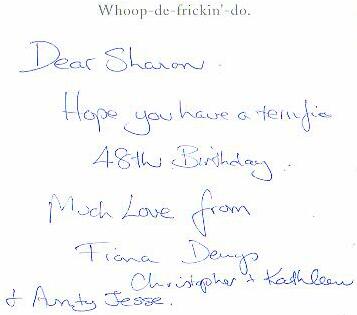 Whoop-de-frickin'-do.
Dear Sharon.
Hope you have a terrific
48th Birthday.
Much Love from
Fiona Denys
Christopher + Kathleen
+ Aunty Jesse.